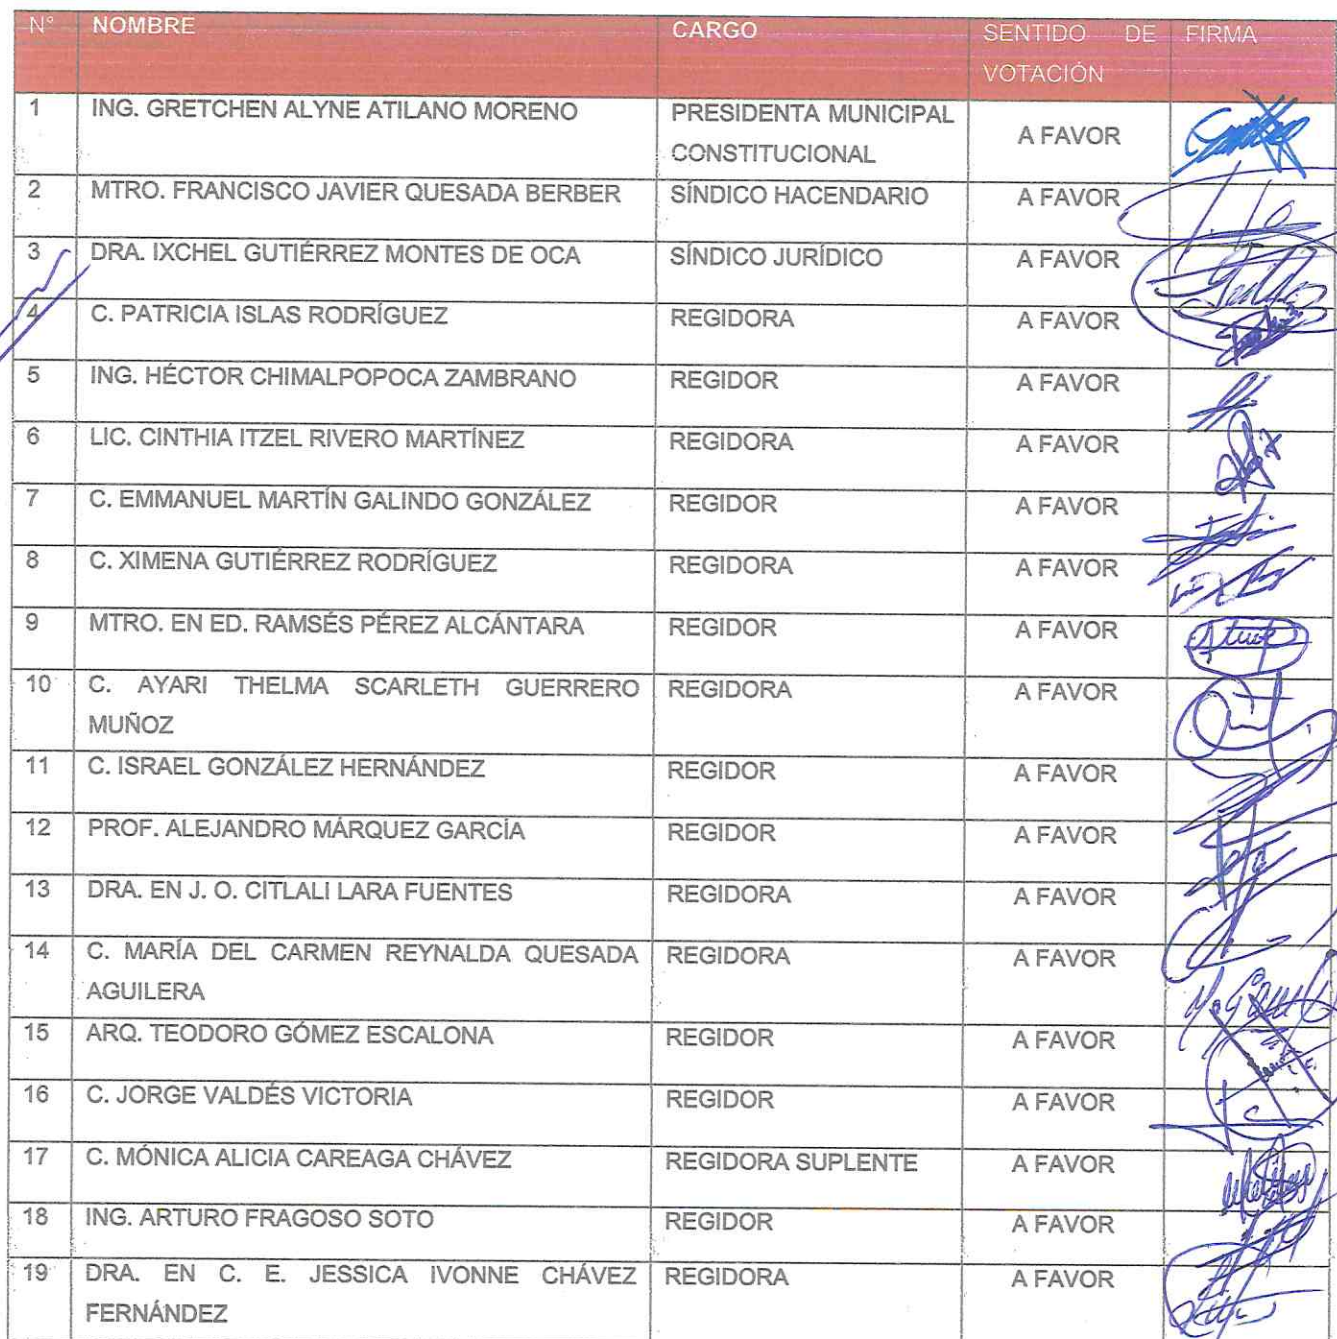 N° NOMBRE CARGO SENTIDO DE FIRMA
VOTACIÓN
1 ING. GRETCHEN ALYNE ATILANO MORENO PRESIDENTA MUNICIPAL A FAVOR
CONSTITUCIONAL
2 MTRO. FRANCISCO JAVIER QUESADA BERBER SÍNDICO HACENDARIO A FAVOR
3 DRA. IXCHEL GUTIÉRREZ MONTES DE OCA SÍNDICO JURÍDICO A FAVOR
4 C. PATRICIA ISLAS RODRÍGUEZ REGIDORA A FAVOR
5 ING. HÉCTOR CHIMALPOPOCA ZAMBRANO REGIDOR A FAVOR
6 LIC. CINTHIA ITZEL RIVERO MARTÍNEZ REGIDORA A FAVOR
7 C. EMMANUEL MARTÍN GALINDO GONZÁLEZ REGIDOR A FAVOR
8 C. XIMENA GUTIÉRREZ RODRÍGUEZ REGIDORA A FAVOR
9 MTRO. EN ED. RAMSÉS PÉREZ ALCÁNTARA REGIDOR A FAVOR
10 C. AYARI THELMA SCARLETH GUERRERO REGIDORA A FAVOR
MUÑOZ
11 C. ISRAEL GONZÁLEZ HERNÁNDEZ REGIDOR A FAVOR
12 PROF. ALEJANDRO MÁRQUEZ GARCÍA REGIDOR A FAVOR
13 DRA. EN J. O. CITLALI LARA FUENTES REGIDORA A FAVOR
14 C. MARÍA DEL CARMEN REYNALDA QUESADA REGIDORA A FAVOR
AGUILERA
15 ARQ. TEODORO GÓMEZ ESCALONA REGIDOR A FAVOR
16 C. JORGE VALDÉS VICTORIA REGIDOR A FAVOR
17 C. MÓNICA ALICIA CAREAGA CHÁVEZ REGIDORA SUPLENTE A FAVOR
18 ING. ARTURO FRAGOSO SOTO REGIDOR A FAVOR
19 DRA. EN C. E. JESSICA IVONNE CHÁVEZ REGIDORA A FAVOR
FERNÁNDEZ